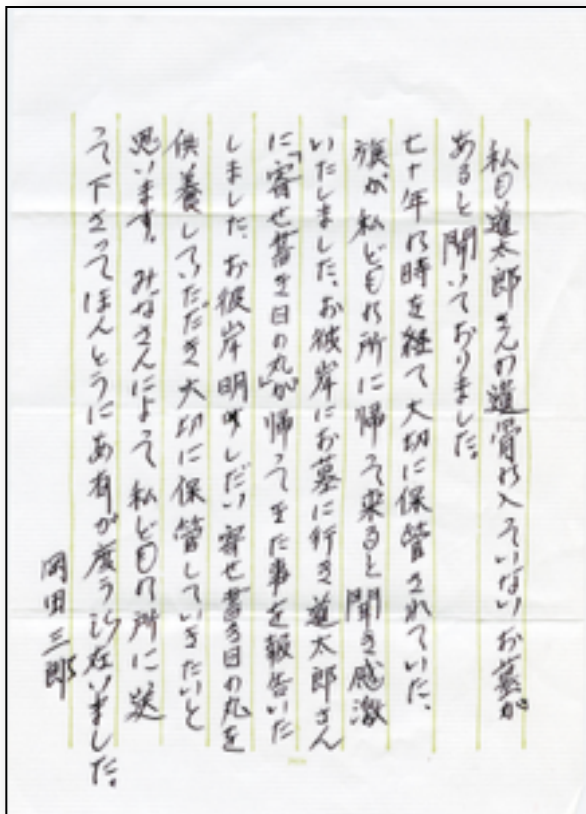 私も道太郎さんの遺骨の入っていないお墓が
あると聞いておりました。
七十年の時を経て大切に保管されていた、
旗が私どもの所に帰って来ると聞き感激
いたしました、お彼岸にお墓に行き道太郎さん
に「寄せ書き日の丸」が帰ってきた事を報告いた
しました、お彼岸明けしだい寄せ書き日の丸を
供養していただき大切に保管していきたいと
思います。みなさんによって私どもの所に送
って下さってほんとうにあ有が度う御在いました。
岡田三郎